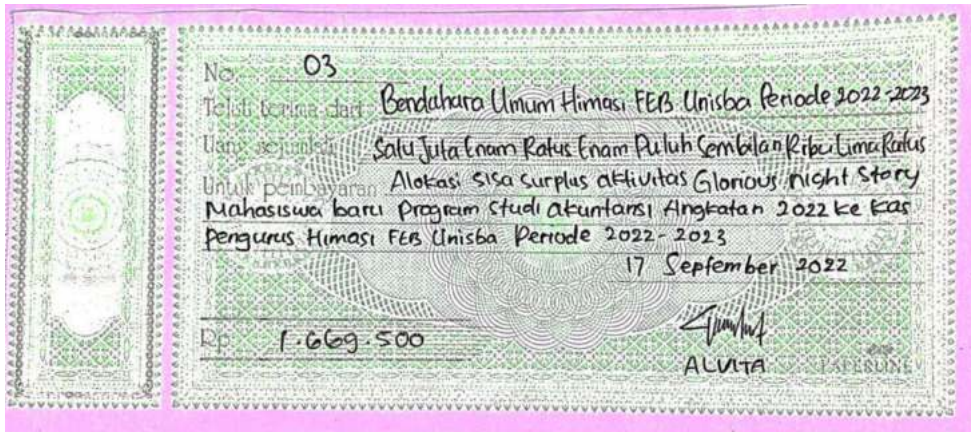 No. 03
Telah terima dari Bendahara Umum Himasi FEB Unisba Periode 2022-2023
Uang sejumlah Satu Juta Enam Ratus Enam Puluh Sembilan Ribu Lima Ratus
Untuk pembayaran Alokasi sisa surplus aktivitas Glorious night Story
Mahasiswa baru program studi akuntansi Angkatan 2022 ke kas
pengurus Himasi FEB Unisba Periode 2022-2023
17 September 2022
Rp. 1.669.500
ALVITA
PAPERLINE